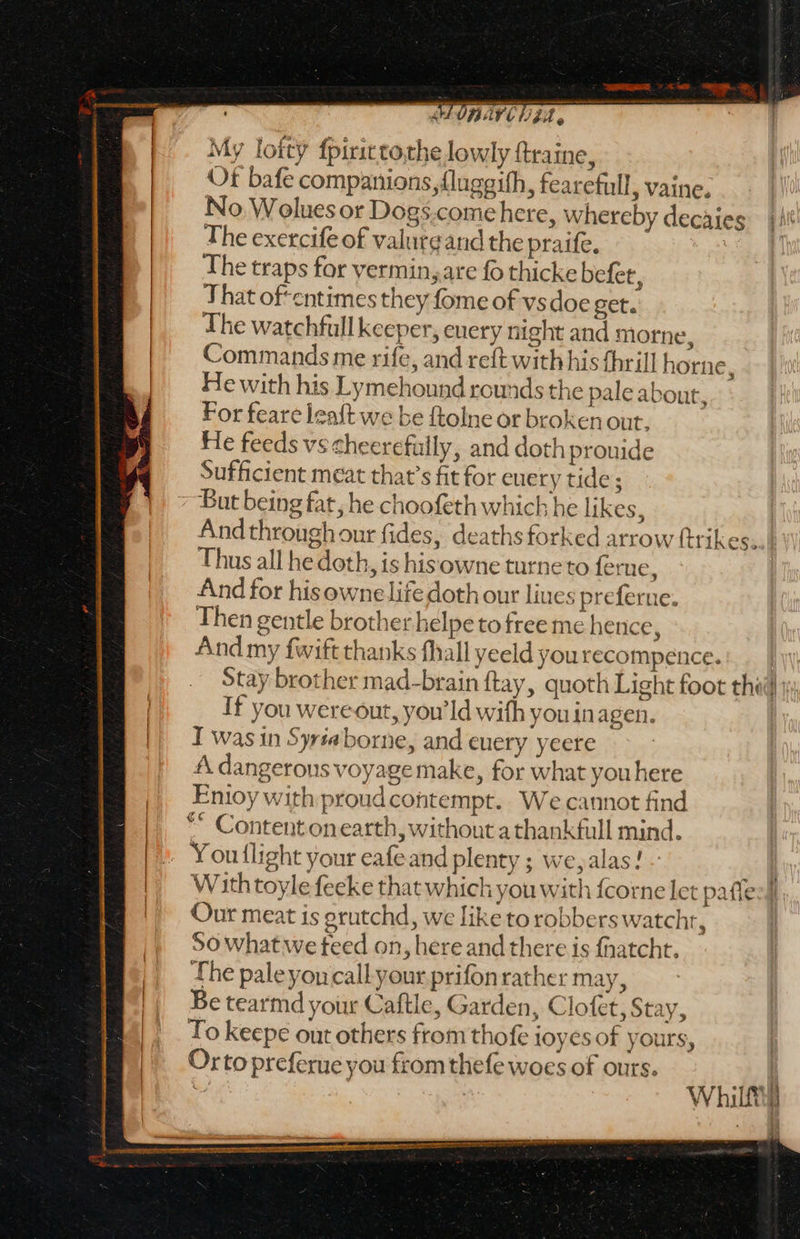 Monarchia.
My lofty ſpirit to the lowly ſtraine,
Of baſe companions, ſluggiſh, fearefull, vaine.
No Wolues or Dogs come here, whereby decaies
The exerciſe of valure and the praiſe.
The traps for vermin, are ſo thicke beſet,
That oftentimes they ſome of vs doe get.
The watchfull keeper, euery night and morne,
Commands me riſe, and reſt with his ſhrill horne,
He with his Lymehound rounds the pale about,
For feare leaſt we be ſtolne or broken out,
He feeds vs cheerefully, and doth prouide
Sufficient meat that's fit for euery tide;
But being fat, he chooſeth which he likes,
And through our ſides, deaths forked arrow ſtrikes.
Thus all he doth, is his owne turne to ſerue,
And for his owne life doth our liues preſerue.
Then gentle brother helpe to free me hence,
And my ſwift thanks ſhall yeeld you recompence.
Stay brother mad-brain ſtay, quoth Light foot
If you were out, you'ld wiſh you in agen.
I was in Syria borne, and euery yeere
A dangerous voyage make, for what you here
Enioy with proud contempt. We cannot find
“ Content on earth, without a thankfull mind.
You ſlight your eaſe and plenty; we, alas!
With toyle ſeeke that which you with ſcorne let paſſe:
Our meat is grutchd, we like to robbers watcht,
So what we feed on, here and there is ſnatcht.
The pale you call your priſon rather may,
Be tearmd your Caſtle, Garden, Cloſet, Stay,
To keepe out others from thoſe ioyes of yours,
Or to preſerue you from theſe woes of ours.
Whilſt